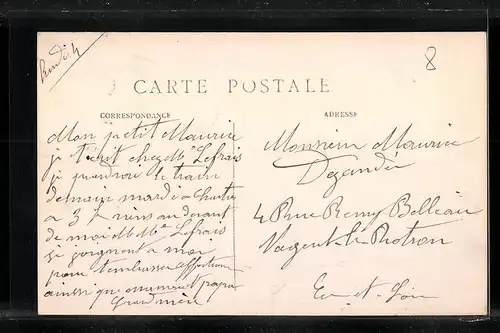 Lundi 4
8
CARTE POSTALE
CORRESPONDANCE
ADRESSE
Mon petit Maurice
je t'écrit chez Mme Lefrais
je prendrai le train
demain mardi a Chartre
a 3 h viens au devant
de moi M et Mme Lefrais
se joignent a moi
pour t'embrasser affectueu
ainsi que maman et papa
Grand mère
Monsieur Maurice
Dezandée
4 Rue Remy Belleau
Nogent le Rotrou
Eur et Loir